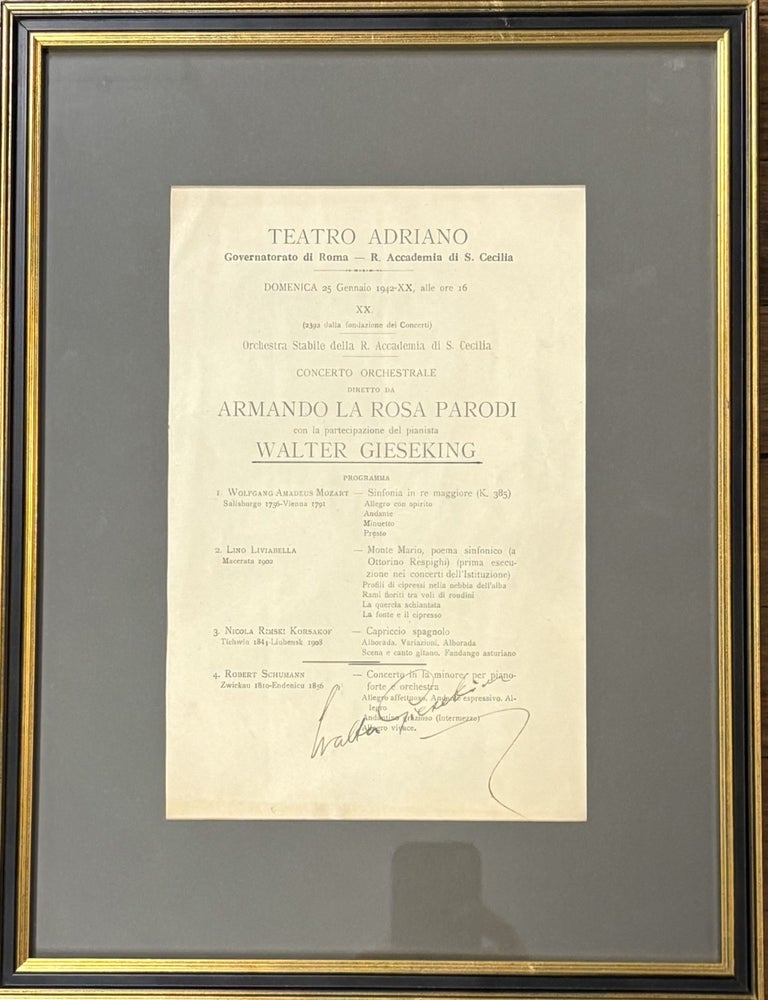 TEATRO ADRIANO
Governatorato di Roma — R. Accademia di S. Cecilia
DOMENICA 25 Gennaio 1942-XX, alle ore 16
XX.
(2392 dalla fondazione dei Concerti)
Orchestra Stabile della R. Accademia di S. Cecilia
CONCERTO ORCHESTRALE
DIRETTO DA
ARMANDO LA ROSA PARODI
con la partecipazione del pianista
WALTER GIESEKING
PROGRAMMA
1. WOLFGANG AMADEUS MOZART — Sinfonia in re maggiore (K. 385)
Salisburgo 1756-Vienna 1791 Allegro con spirito
Andante
Minuetto
Presto
2. LINO LIVIABELLA — Monte Mario, poema sinfonico (a
Macerata 1902 Ottorino Respighi) (prima esecu-
zione nei concerti dell'Istituzione)
Profili di cipressi nella nebbia dell'alba
Rami fioriti tra voli di rondini
La quercia schiantata
La fonte e il cipresso
3. NICOLA RIMSKI KORSAKOF — Capriccio spagnolo
Tichwin 1844-Liubensk 1908 Alborada. Variazioni. Alborada
Scena e canto gitano. Fandango asturiano
4. ROBERT SCHUMANN — Concerto in la minore per piano-
Zwickau 1810-Endenicu 1856 forte e orchestra
Allegro affettuoso. Andante espressivo. Al-
legro
Andantino grazioso (Intermezzo)
Allegro vivace.
Walter Gieseking